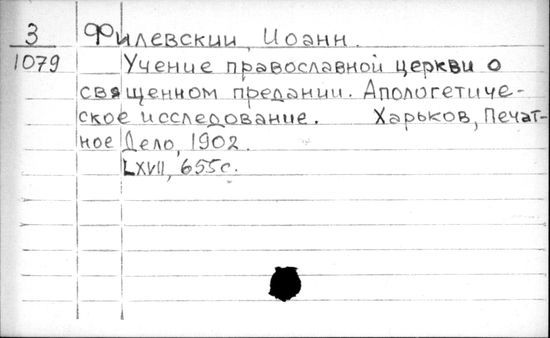 3 Филевскии, Иоанн.
1079 Учение православной церкви о
священном предании. Апологетиче-
ское исследование. Харьков, Печат-
ное Дело, 1902.
LXVII, 655с.